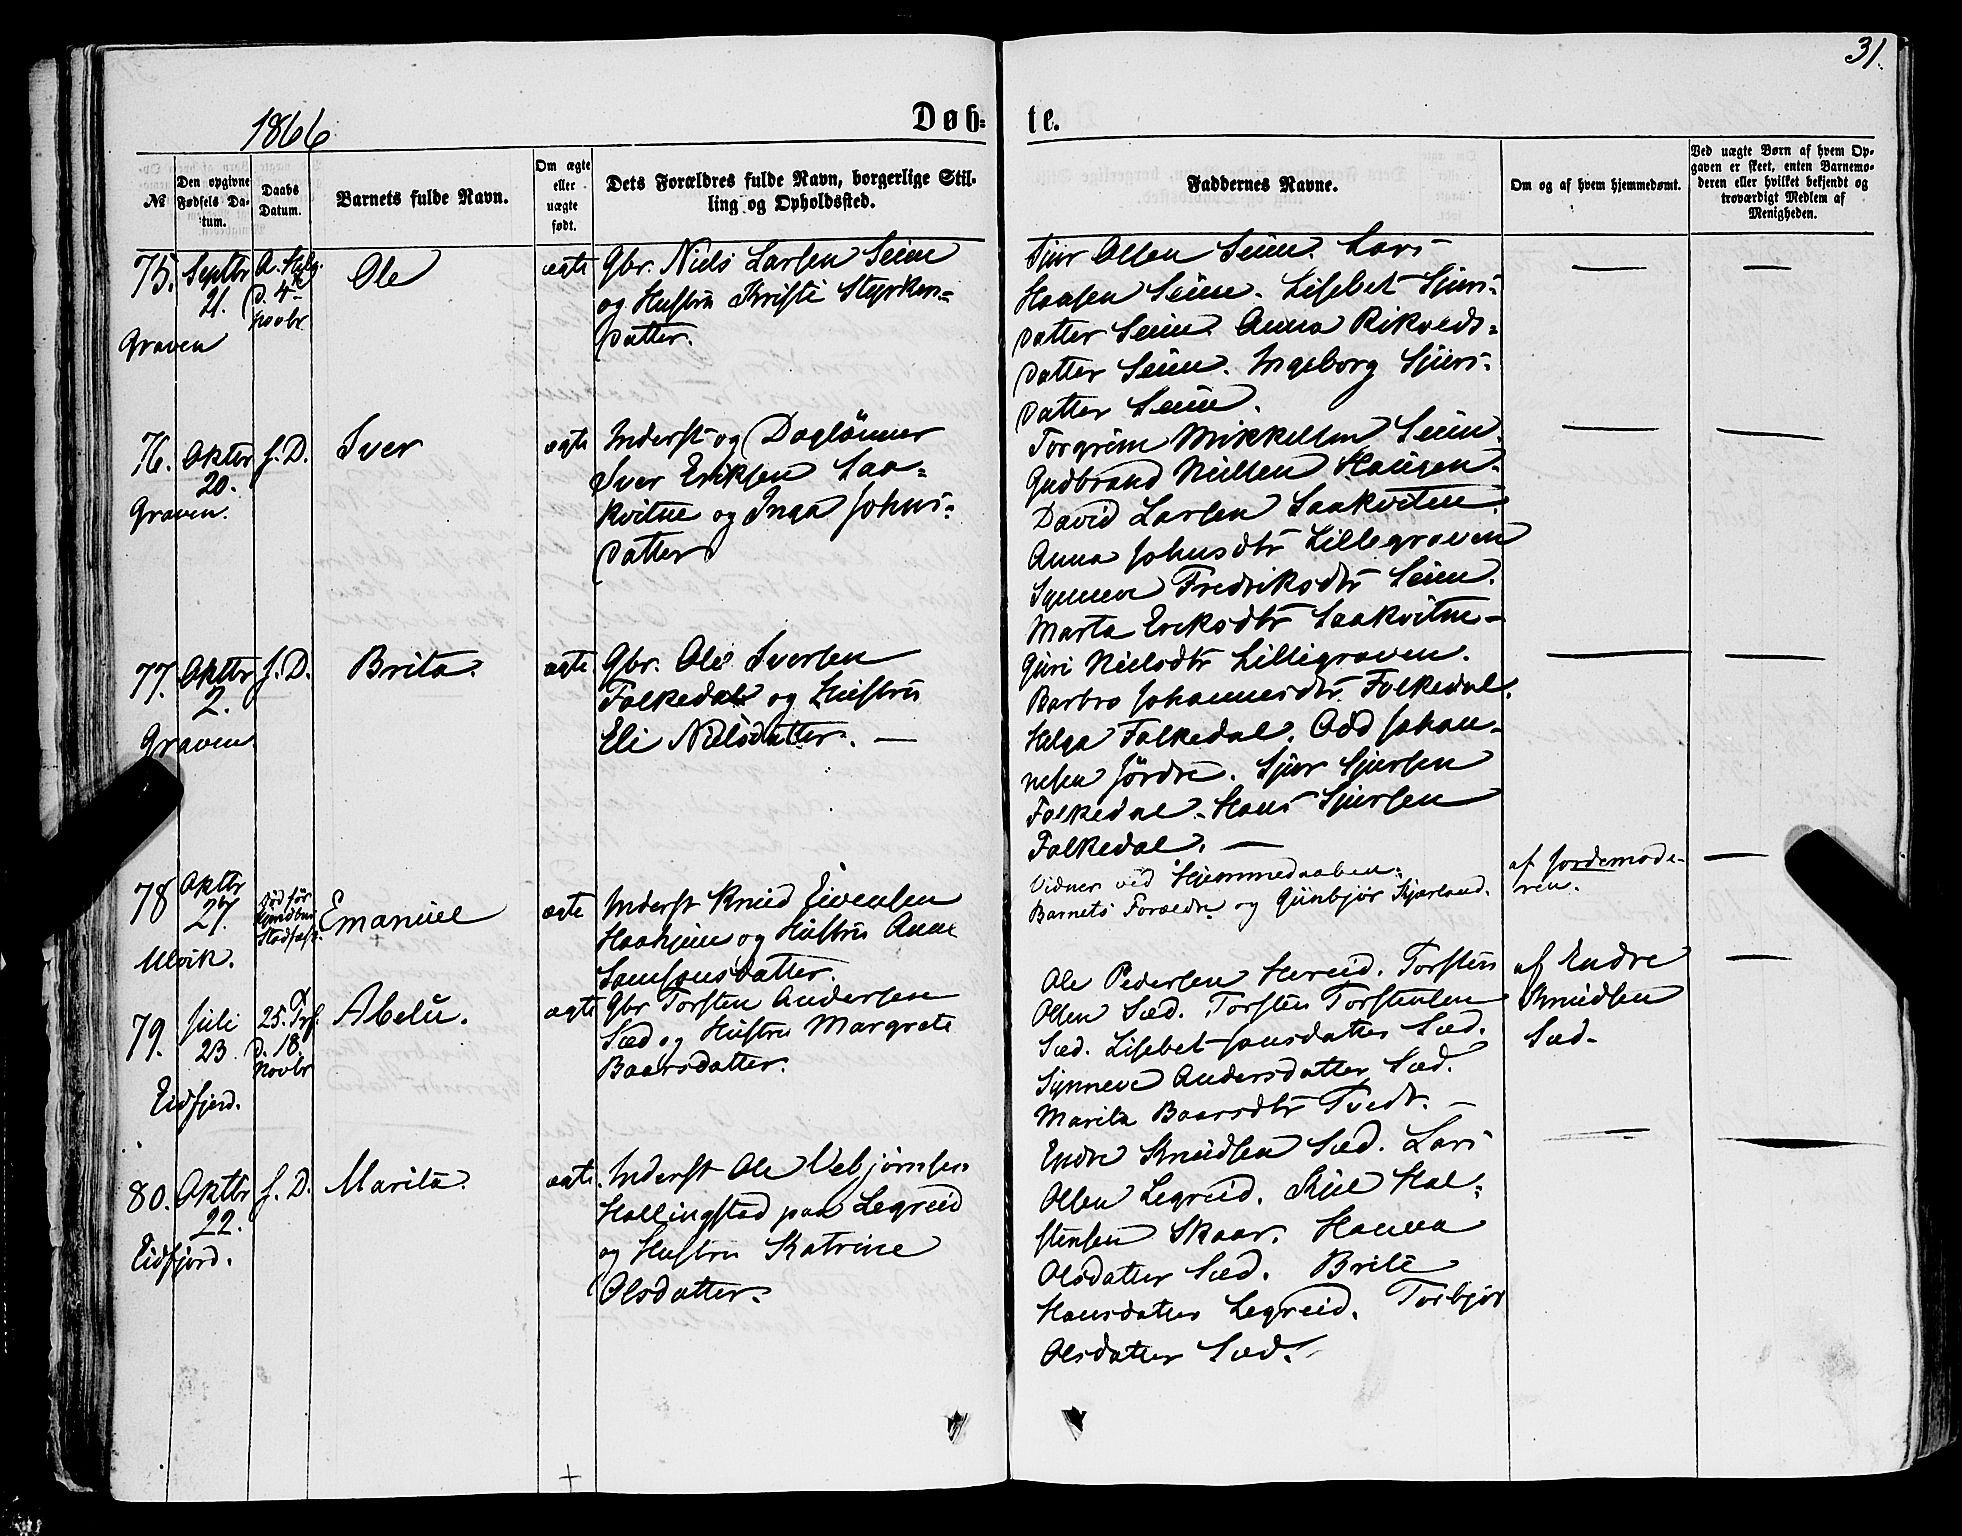 31.
1866
Døb-
te.
№
Den opgivne Fødsels Datum.
Daabs Datum.
Barnets fulde Navn.
Om ægte eller uægte født.
Dets Forældres fulde Navn, borgerlige Stilling og Opholdssted.
Faddernes Navne.
Om og af hvem hjemmedøbt.
Ved uægte Børn af hvem Opgaven er skeet, enten Barnemoderen eller hvilket bekjendt og troværdigt Medlem af Menigheden.
75. Septbr 21. A. Helg. D. 4de Novbr
Graven
Ole
ægte
Gbr. Niels Larsen Seim
og Hustru Kristi Styrkers-
datter.
Sjur Olsen Seim. Lars
Hansen Seim. Lisbet Sjurs-
datter Seim. Anna Rikveds-
datter Seim. Ingeborg Sjurs-
datter Seim.
76. Oktbr 20. s. D.
Graven.
Iver
ægte
Inderst og Daglönner
Iver Eriksen Saa-
kvitne og Inga Johns-
datter
Torgrim Mikkelsen Seim.
Gudbrand Nielsen Haugen.
David Larsen Saakvitne.
Anna Johnsdtr Lillegraven
Synneve Fredriksdtr Seim.
Marta Eriksdtr Saakvitne-
77. Oktbr 2. s. D.
Graven.
Brita.
ægte
Gbr. Ole Iversen
Folkedal og Hustru
Eli Nielsdatter. —
Guri Nielsdtr Lillegraven.
Barbro Johannesdtr Folkedal.
Helga Folkedal. Odd Johan-
nesen Jördre. Sjur Sjursen
Folkedal. Hans Sjursen
Folkedal. —
78 Oktbr 27. död för
Stadfæst.
Ulvik.
Emanuel
ægte
Inderst Knud Eivensen
Haaheim og Hustru Anne
Samsonsdatter.
Vidner ved Hjemmedaaben:
Barnets Forældre og Gunbjør Kjærland.
af Jordemode-
ren.
79. Juli 23. 25. Trf. D. 18. Novbr
Eidfjord.
Abelu.
ægte
Gbr Torsten Andersen
Sæd og Hustru Margrete
Baarsdatter.
Ole Pedersen Hereid. Torsten
Olsen Sæd. Torsten Torstensen
Sæd. Lisbet Jonsdatter Sæd.
Synneve Andersdatter Sæd.
Marita Baarsdtr Tvedt. —
af Endre
Knudsen
Sæd-
80. Oktbr 22. s. D.
Eidfjord.
Marita.
ægte.
Inderst Ole Vebjørnsen
Hallingstad paa Legreid
og Hustru Katrine
Olsdatter.
Endre Knudsen Sæd. Lars
Olsen Legreid. Kjel Hal-
stensen Skaar. Hanna
Olsdatter Sæd. Brite
Hansdatter Legreid. Torbjør
Olsdatter Sæd.